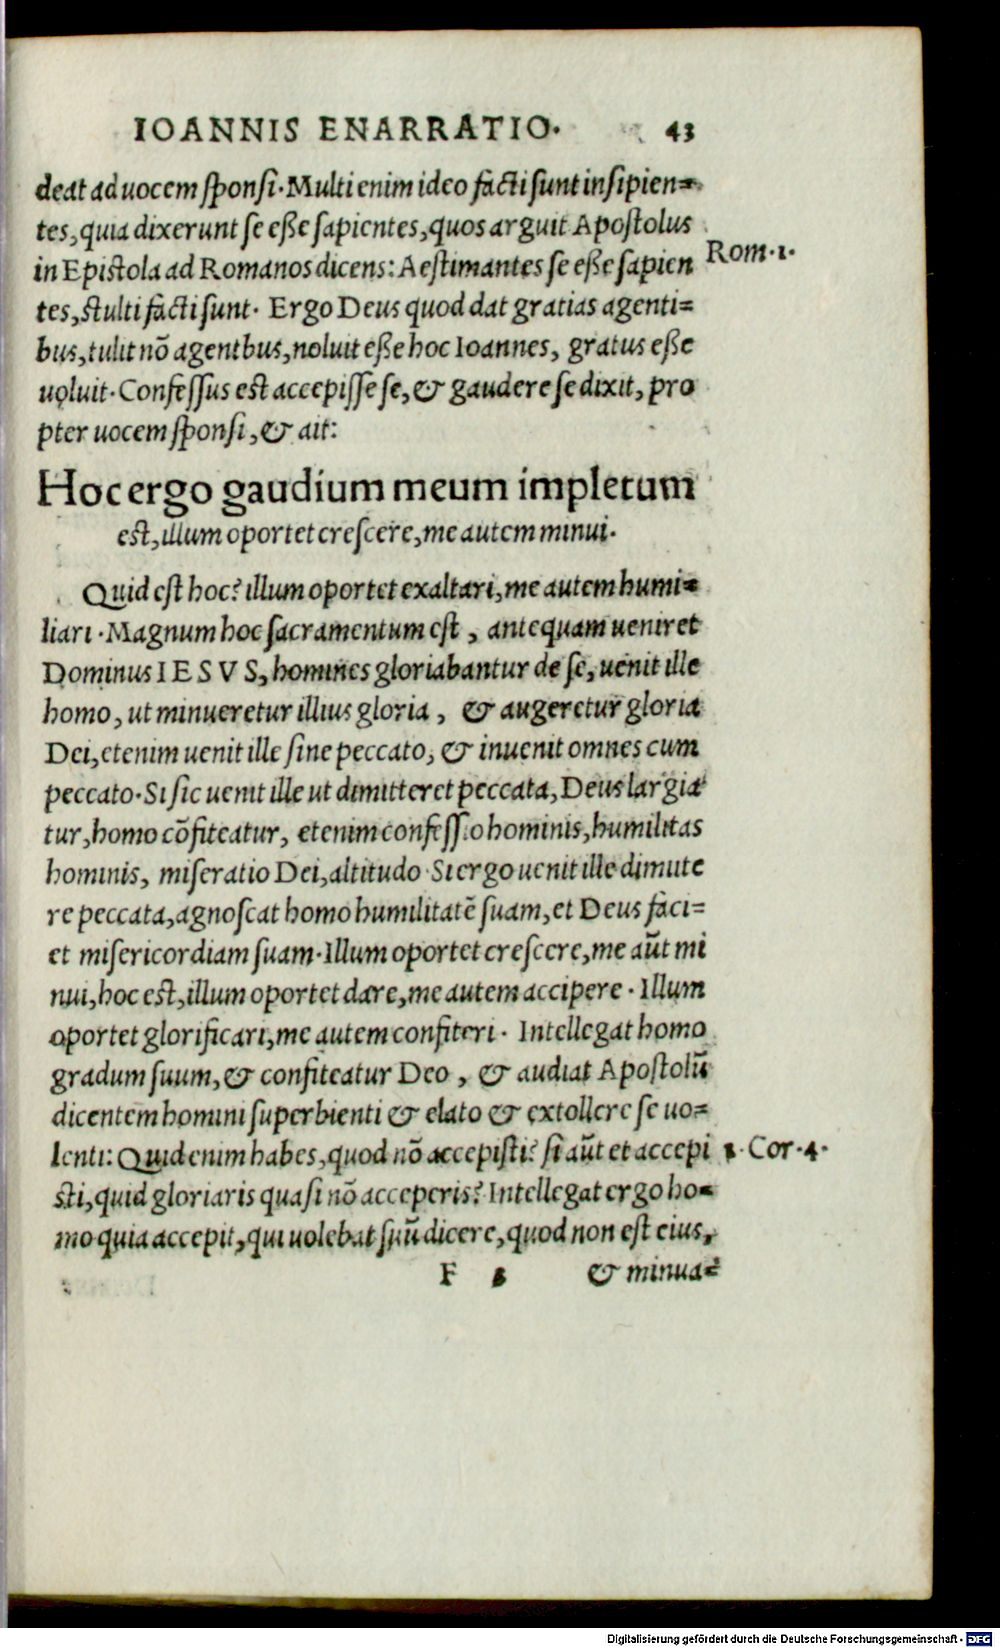 IOANNIS ENARRATIO. 43
deat ad uocem sponsi. Multi enim ideo facti sunt insipien=
tes, quia dixerunt se esse sapientes, quos arguit Apostolus
in Epistola ad Romanos dicens: Aestimantes se esse sapien
Rom. 1.
tes, stulti facti sunt. Ergo Deus quod dat gratias agenti=
bus, tulit nõ agentbus, noluit esse hoc Ioannes, gratus esse
uoluit. Confessus est accepisse se, & gaudere se dixit, pro
pter uocem sponsi, & ait:
Hoc ergo gaudium meum impletum
est, illum oportet crescere, me autem minui.
Quid est hoc? illum oportet exaltari, me autem humi=
liari. Magnum hoc sacramentum est, antequam ueniret
Dominus IESVS, homines gloriabantur de se, uenit ille
homo, ut minueretur illius gloria, & augeretur gloria
Dei, etenim uenit ille sine peccato, & inuenit omnes cum
peccato. Si sic uenit ille ut dimitteret peccata, Deus largia
tur, homo cõfiteatur, etenim confessio hominis, humilitas
hominis, miseratio Dei, altitudo. Si ergo uenit ille dimitte
re peccata, agnoscat homo humilitatẽ suam, et Deus faci=
et misericordiam suam. Illum oportet crescere, me aũt mi
nui, hoc est, illum oportet dare, me autem accipere. Illum
oportet glorificari, me autem confiteri. Intellegat homo
gradum suum, & confiteatur Deo, & audiat Apostolũ
dicentem homini superbienti & elato & extollere se uo=
lenti: Quid enim habes, quod nõ accepisti? si aũt et accepi
1. Cor. 4.
sti, quid gloriaris quasi nõ acceperis? Intellegat ergo ho=
mo quia accepit, qui uolebat suũ dicere, quod non est eius,
F 3 & minua=
Digitalisierung gefördert durch die Deutsche Forschungsgemeinschaft - DFG